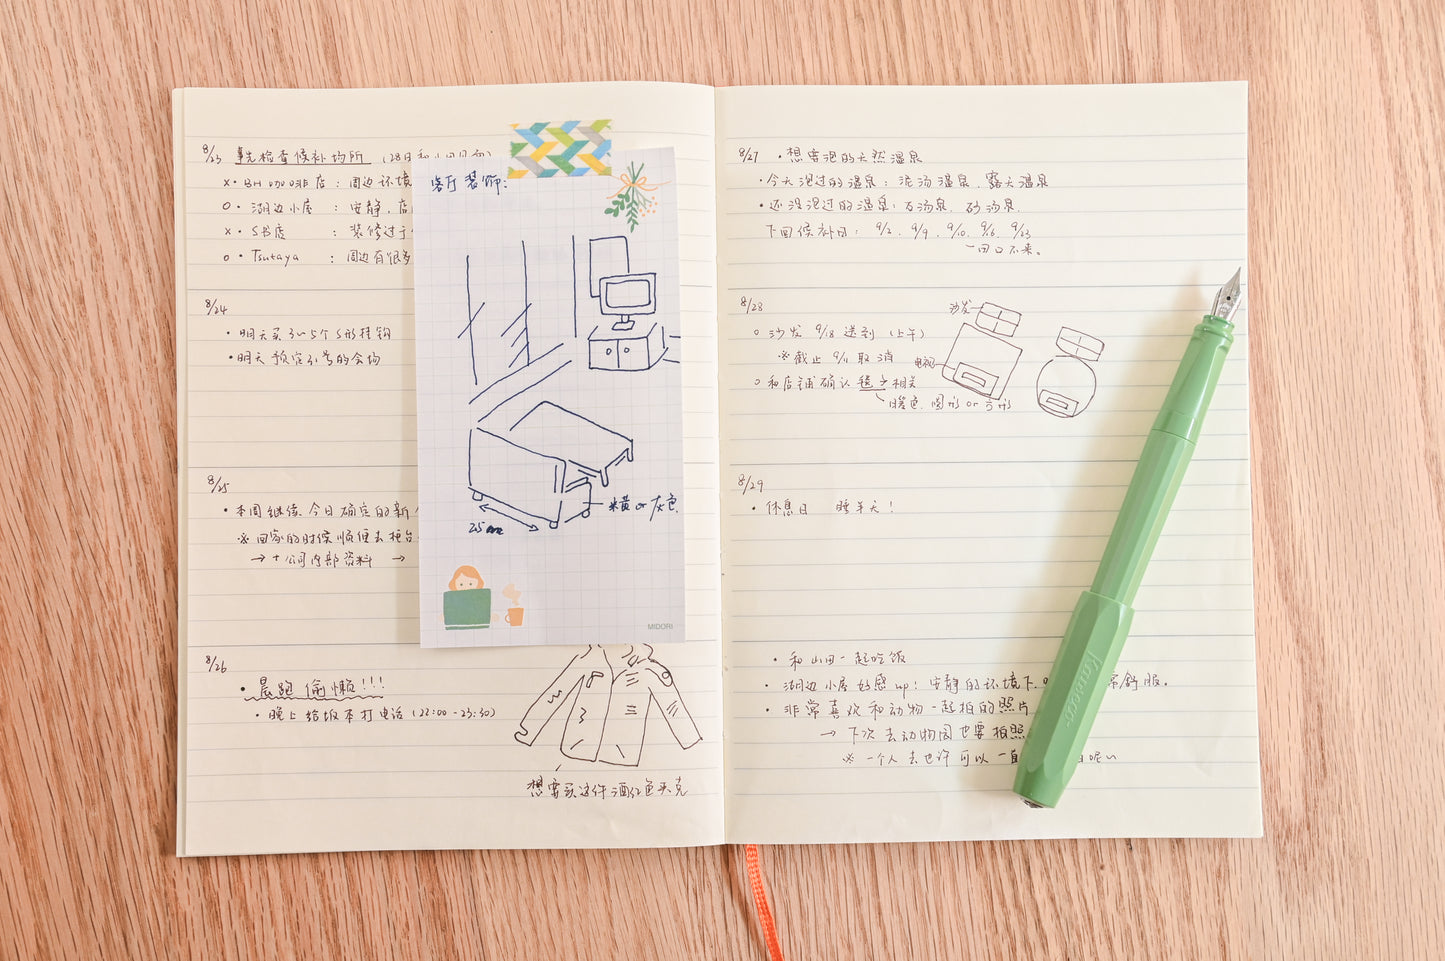 8/23 事先检查候补场所 (28日和山田见面)
x・BH咖啡店：周边环境
o・湖边小屋：安静，店
x・SB店：装修过于
o・Tsutaya：周边有很多
8/24
・明天买3~5个S形挂钩
・明天预定31号的会场
8/25
・本周继续 今日确定的新
※回家的时候顺便去柜台
→ + 公司内部资料 →
8/26
・晨跑偷懒!!!
・晚上给坂本打电话 (22:00-23:30)
想要买这件酒红色夹克
客厅装饰：
米黄 or 灰色
MIDORI
8/27 ・想要泡的天然温泉
・今天泡过的温泉：泥汤温泉、露天温泉
・还没泡过的温泉：石汤泉、砂汤泉
下回候补日：9/2、9/9、9/10、9/16、9/23
8/28
o 沙发 9/18 送到 (上午)
※截止 9/11 取消
o 和店铺确认 毯子相关
暖色，圆形 or 方形
沙发
电视
8/29
・休息日 睡半天！
・和山田一起吃饭
・湖边小屋好感up：安静的环境下 常舒服。
・非常喜欢和动物一起拍的照片
→ 下次去动物园也要拍照
※ 一个人去也许可以一直 呢~
Kaweco